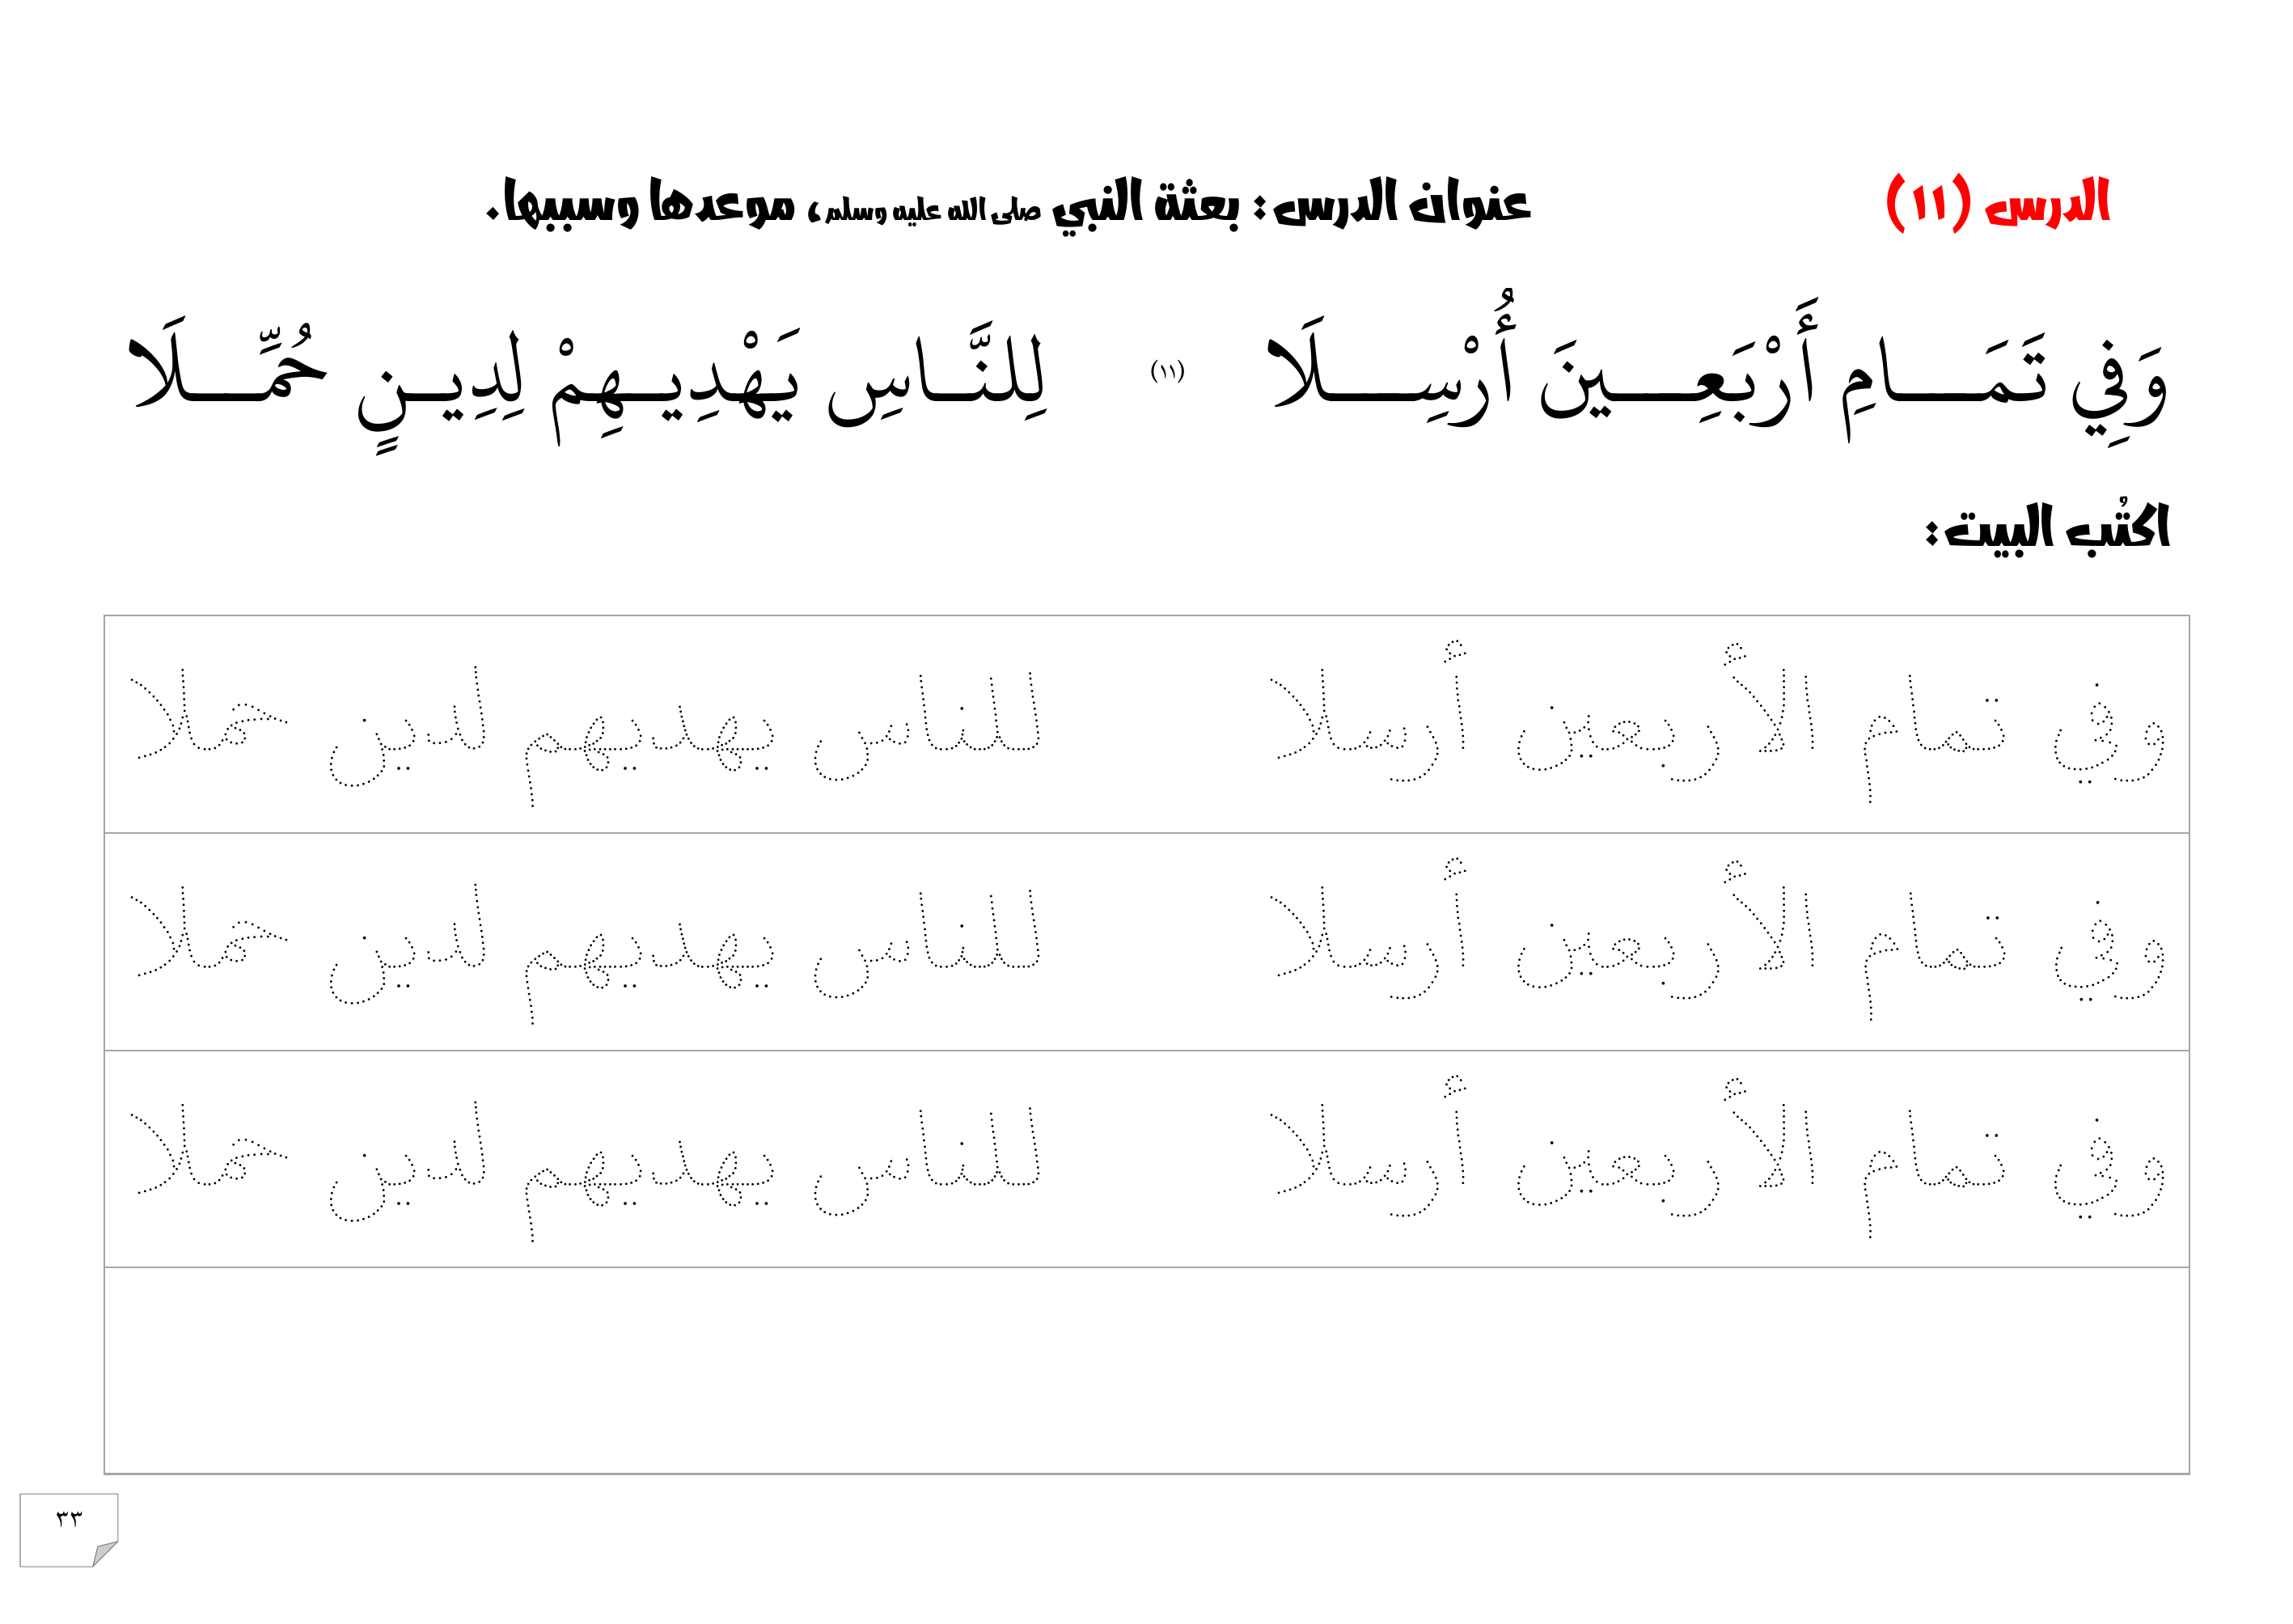 الدرس (١١) عنوان الدرس: بعثة النبي صلى الله عليه وسلم، موعدها وسببها.
وَفِي تَمَـــامِ أَرْبَعِـــينَ أُرْسِـــلَا (١١) لِلنَّـــاسِ يَهْدِيـهِمْ لِدِيـنٍ حُمِّـــلَا
اكتُب البيت:
وفي تمام الأربعين أرسلا للناس يهديهم لدين حملا
وفي تمام الأربعين أرسلا للناس يهديهم لدين حملا
وفي تمام الأربعين أرسلا للناس يهديهم لدين حملا
٣٣